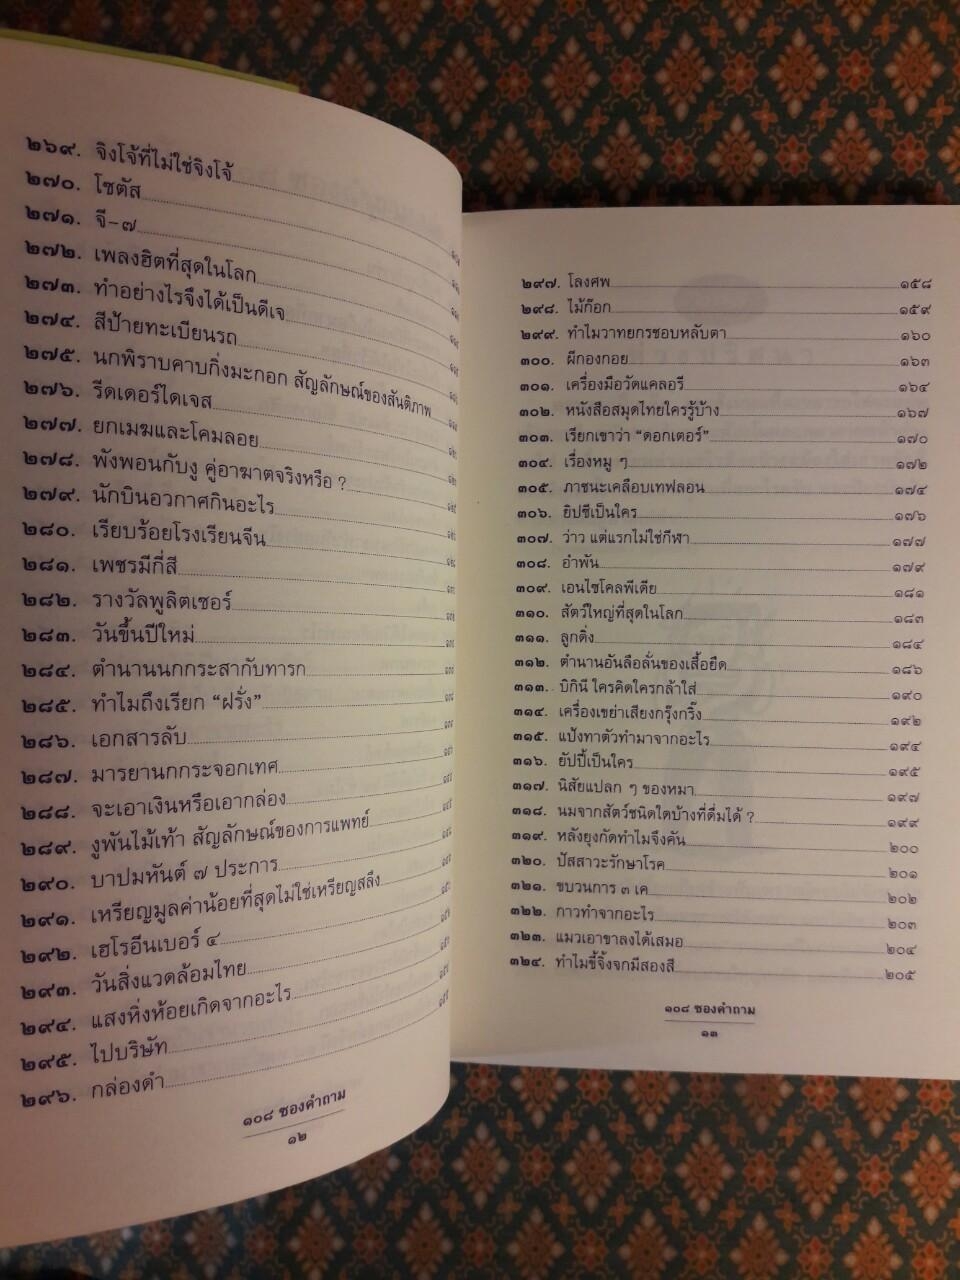 ๒๖๙. จิงโจ้ที่ไม่ใช่จิงโจ้
๒๗๐. โซตัส
๒๗๑. จี-๗
๒๗๒. เพลงฮิตที่สุดในโลก
๒๗๓. ทำอย่างไรจึงได้เป็นดีเจ
๒๗๔. สีป้ายทะเบียนรถ
๒๗๕. นกพิราบคาบกิ่งมะกอก สัญลักษณ์ของสันติภาพ
๒๗๖. รีดเดอร์ไดเจส
๒๗๗. ยกเมฆและโคมลอย
๒๗๘. พังพอนกับงู คู่อาฆาตจริงหรือ ?
๒๗๙. นักบินอวกาศกินอะไร
๒๘๐. เรียบร้อยโรงเรียนจีน
๒๘๑. เพชรมีกี่สี
๒๘๒. รางวัลพูลิตเซอร์
๒๘๓. วันขึ้นปีใหม่
๒๘๔. ตำนานนกกระสากับทารก
๒๘๕. ทำไมถึงเรียก “ฝรั่ง”
๒๘๖. เอกสารลับ
๒๘๗. มารยานกกระจอกเทศ
๒๘๘. จะเอาเงินหรือเอากล่อง
๒๘๙. งูพันไม้เท้า สัญลักษณ์ของการแพทย์
๒๙๐. บาปมหันต์ ๗ ประการ
๒๙๑. เหรียญมูลค่าน้อยที่สุดไม่ใช่เหรียญสลึง
๒๙๒. เฮโรอีนเบอร์ ๔
๒๙๓. วันสิ่งแวดล้อมไทย
๒๙๔. แสงหิ่งห้อยเกิดจากอะไร
๒๙๕. ไปบริษัท
๒๙๖. กล่องดำ
๑๐๘ ซองคำถาม
๑๒
๒๙๗. โลงศพ ๑๕๘
๒๙๘. ไม้ก๊อก ๑๕๙
๒๙๙. ทำไมวาทยกรชอบหลับตา ๑๖๐
๓๐๐. ผีกองกอย ๑๖๓
๓๐๑. เครื่องมือวัดแคลอรี ๑๖๔
๓๐๒. หนังสือสมุดไทยใครรู้บ้าง ๑๖๗
๓๐๓. เรียกเขาว่า “ดอกเตอร์” ๑๗๐
๓๐๔. เรื่องหมู ๆ ๑๗๒
๓๐๕. ภาชนะเคลือบเทฟลอน ๑๗๔
๓๐๖. ยิปซีเป็นใคร ๑๗๖
๓๐๗. ว่าว แต่แรกไม่ใช่กีฬา ๑๗๗
๓๐๘. อำพัน ๑๗๙
๓๐๙. เอนไซโคลพีเดีย ๑๘๑
๓๑๐. สัตว์ใหญ่ที่สุดในโลก ๑๘๓
๓๑๑. ลูกดิ่ง ๑๘๔
๓๑๒. ตำนานอันลือลั่นของเสื้อยืด ๑๘๖
๓๑๓. บิกินี ใครคิดใครกล้าใส่ ๑๙๐
๓๑๔. เครื่องเขย่าเสียงกรุ๊งกริ๊ง ๑๙๒
๓๑๕. แป้งทาตัวทำมาจากอะไร ๑๙๔
๓๑๖. ยัปปี้เป็นใคร ๑๙๕
๓๑๗. นิสัยแปลก ๆ ของหมา ๑๙๗
๓๑๘. นมจากสัตว์ชนิดใดบ้างที่ดื่มได้ ? ๑๙๙
๓๑๙. หลังยุงกัดทำไมจึงคัน ๒๐๐
๓๒๐. ปัสสาวะรักษาโรค ๒๐๑
๓๒๑. ขบวนการ ๓ เค ๒๐๒
๓๒๒. กาวทำจากอะไร ๒๐๓
๓๒๓. แมวเอาขาลงได้เสมอ ๒๐๔
๓๒๔. ทำไมขี้จิ้งจกมีสองสี ๒๐๕
๑๐๘ ซองคำถาม
๑๓